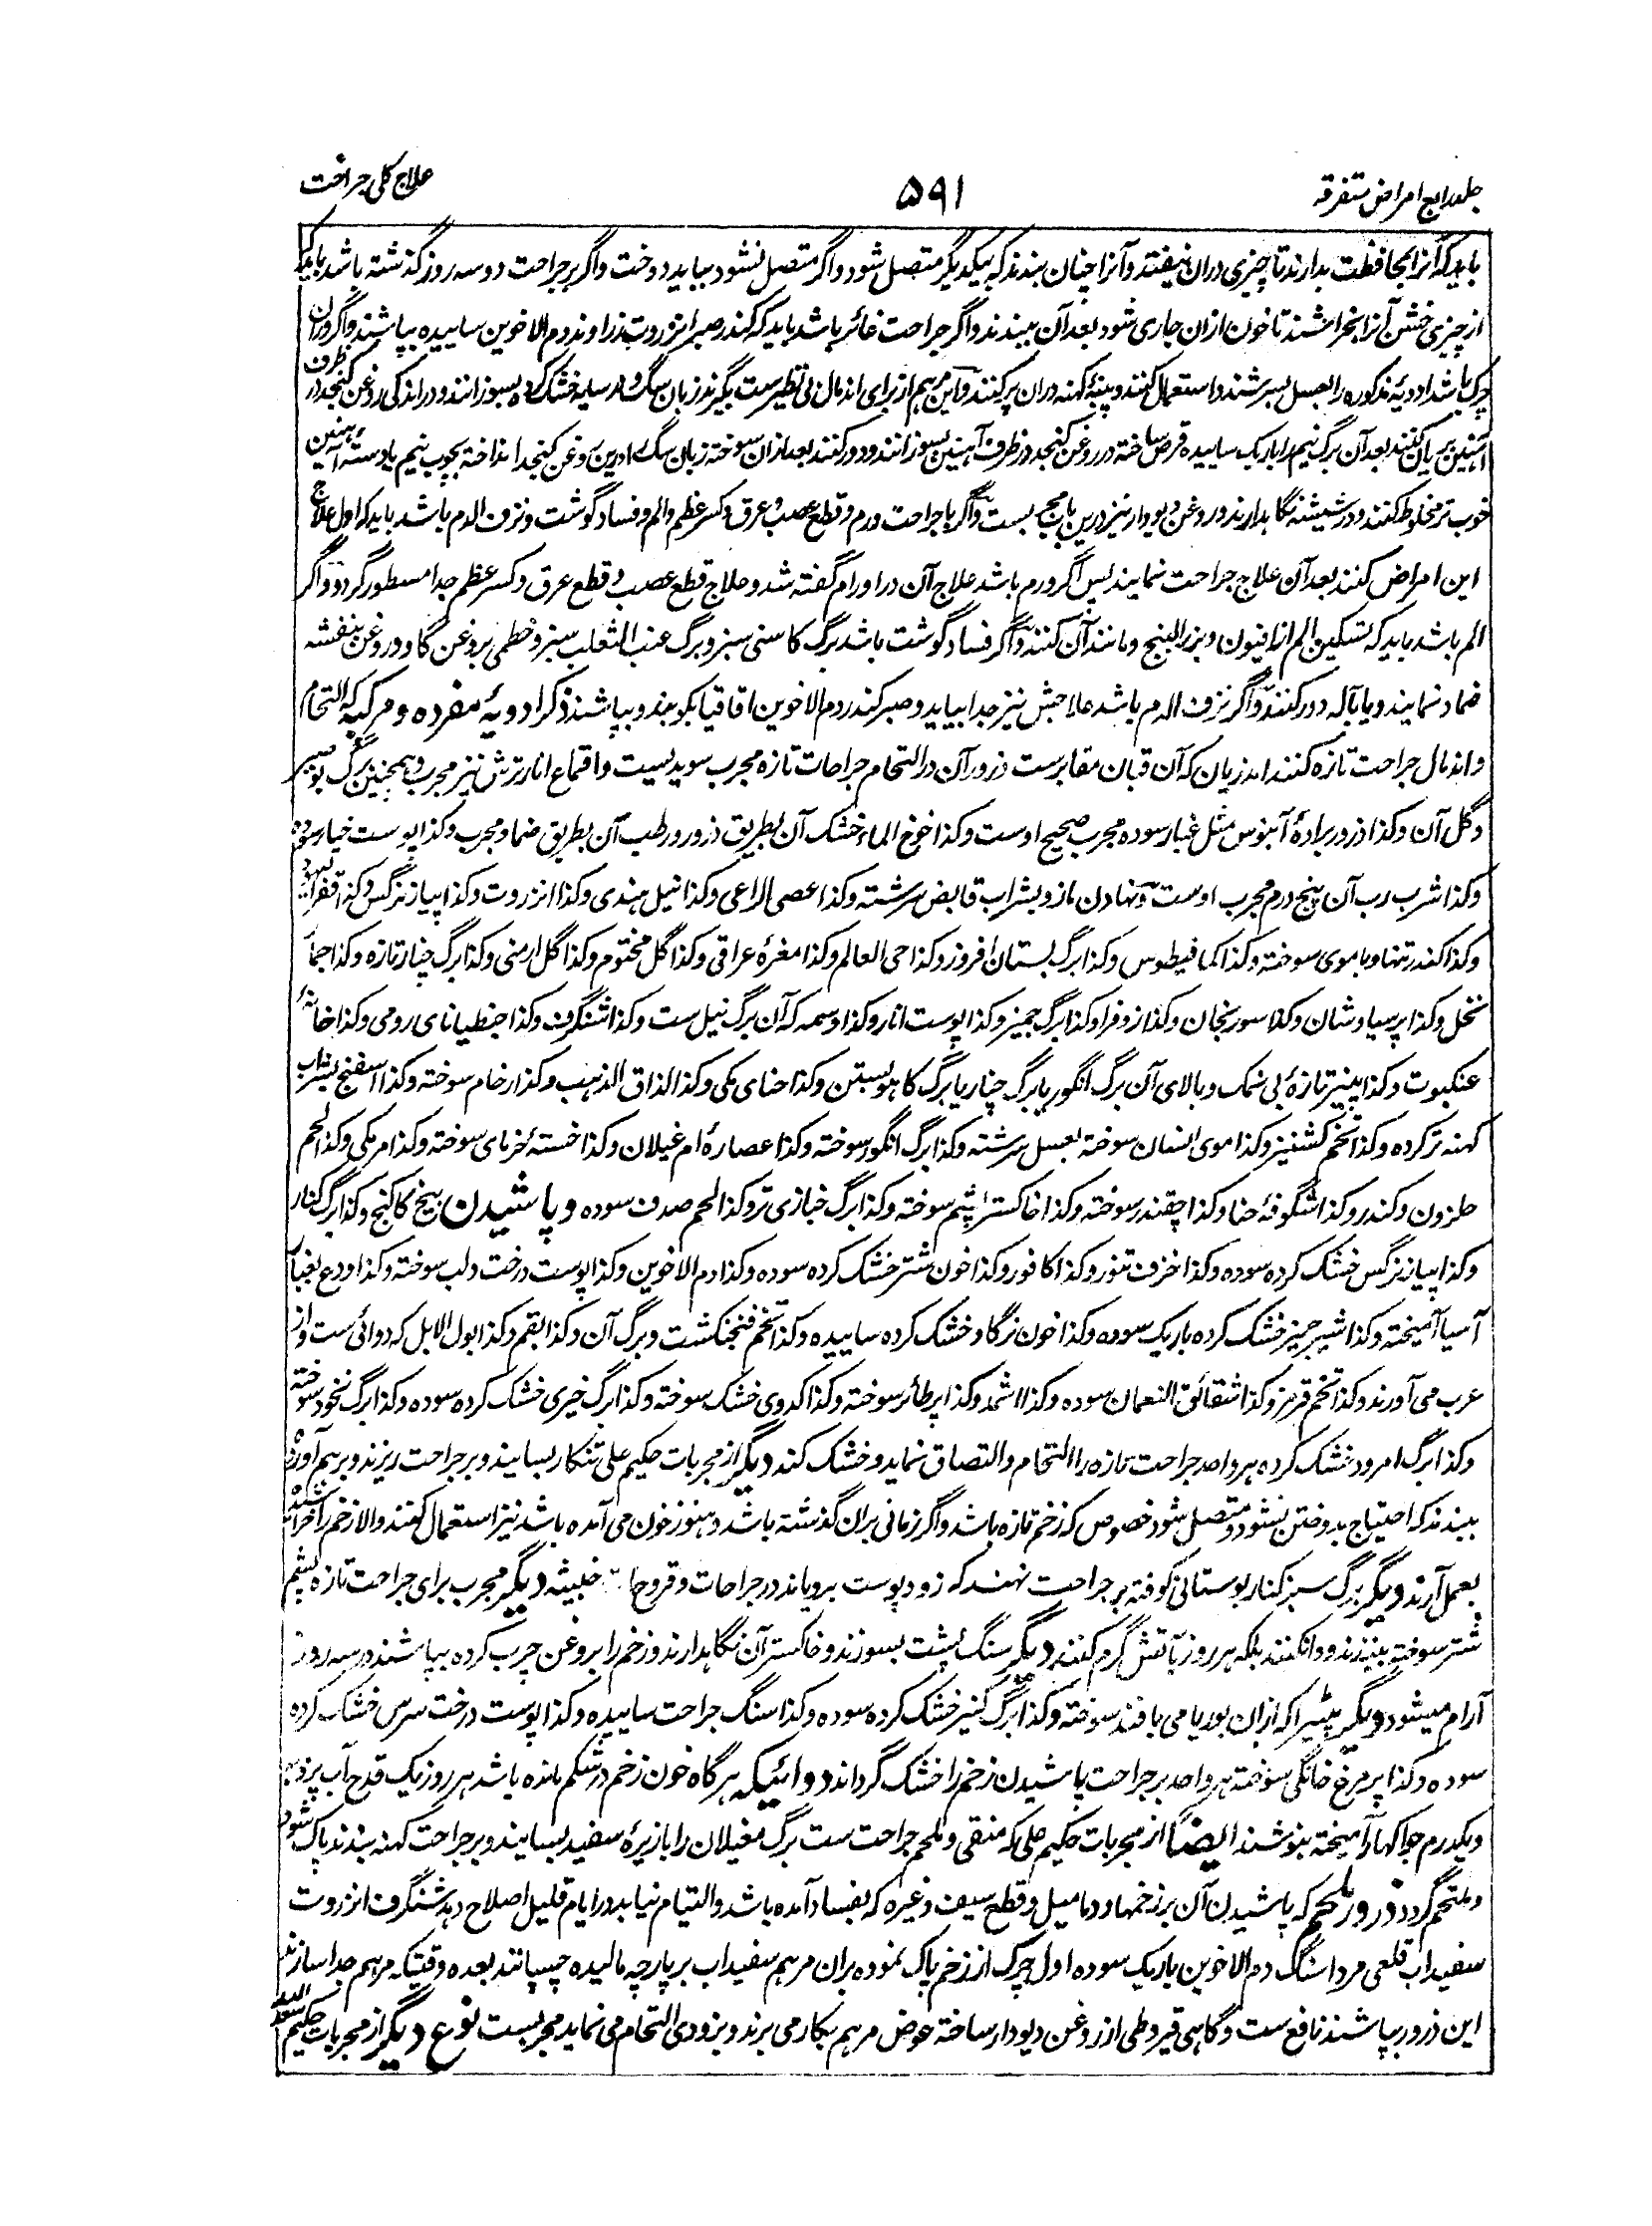 جلد رابع امراض متفرقه
۵۹۱
علاج کلی جراحت
باید که آنرا بمحافظت بدارند تا چیزی دران نیفتد و آنرا چنان بندند که بیکدیگر متصل شود و اگر متصل نشود بباید دوخت و اگر بر جراحت دو سه روز گذشته باشد باید که
از چیزی خشن آنرا بخراشند تا خون ازان جاری شود بعد آن ببندند و اگر جراحت غائر باشد باید که کندر صبر انزروت زراوند دم الاخوین ساییده بپاشند و اگر دران
چرک باشد ادویهٔ مذکوره را بعسل بسرشند و استعمال کنند و پنبهٔ کهنه دران پر کنند و این مرهم از برای اندمال بی نظیرست بگیرند زبان سگ و در سایه خشک کرده بسوزانند و در اندکی روغن کنجد در ظرف
آهنین بریان کنند بعد آن برگ نیم را باریک ساییده قرص ساخته در روغن کنجد در ظرف آهنین بسوزانند و دور کنند بعد ازان سوخته زبان سگ را درین روغن کنجد انداخته بچوب نیم یا دسته آهنین
خوب تر مخلوط کنند و در شیشه نگاهدارند و روغن دیودار نیز درین باب مجربست و اگر با جراحت ورم و قطع عصب و عرق و کسر عظم و الم و فساد گوشت و نزف الدم باشد باید که اول علاج
این امراض کنند بعد آن علاج جراحت نمایند پس اگر ورم باشد علاج آن در اورام گفته شد و علاج قطع عصب و قطع عرق و کسر عظم جدا مسطور گردد و اگر
الم باشد باید که تسکین الم از افیون و بزر البنج و مانند آن کنند و اگر فساد گوشت باشد برگ کاسنی سبز و برگ عنب الثعلب سبز و خطمی بروغن گاو و روغن بنفشه
ضماد نمایند و یا بآله دور کنند و اگر نزف الدم باشد علاجش نیز جدا بیاید و صبر کندر دم الاخوین اقاقیا بکوبند و بپاشند ذکر ادویهٔ مفرده و مرکبه که التحام
و اندمال جراحت تازه کنند اندزیان که آن قبان مقابرست ذرور آن در التحام جراحات تازه مجرب سویدیست و اقماع انار ترش نیز مجرب و همچنین برگ بوصیر
و گل آن و کذا ذرور برادهٔ آبنوس مثل غبار سوده مجرب صحیح اوست و کذا خوخ الماء خشک آن بطریق ذرور و رطب آن بطریق ضماد مجرب و کذا پوست خیار سوده
و کذا شرب رب آن پنج درم مجرب اوست و نهادن مازو بشراب قابض سرشته و کذا عصی الراعی و کذا نیل هندی و کذا انزروت و کذا پیاز نرگس و کذا قفر الیهود
و کذا کندر تنها و با موی سوخته و کذا کمافیطوس و کذا برگ بستان افروز و کذا حی العالم و کذا مغرهٔ عراقی و کذا گل مختوم و کذا گل ارمنی و کذا برگ چنار تازه و کذا جمار
نخل و کذا پرسیاوشان و کذا سورنجان و کذا زوفرا و کذا برگ جمیز و کذا پوست انار و کذا وسمه که آن برگ نیل ست و کذا شنگرف و کذا جنطیانای رومی و کذا خانهٔ
عنکبوت و کذا پنیر تازهٔ بی نمک و بالای آن برگ انگور یا برگ چنار یا برگ کاهو بستن و کذا حنای مکی و کذا الذاق الذهب و کذا رخام سوخته و کذا اسفنج بشراب
کهنه تر کرده و کذا تخم کشنیز و کذا موی انسان سوخته بعسل سرشته و کذا برگ انگور سوخته و کذا عصارهٔ ام غیلان و کذا خستهٔ خرمای سوخته و کذا مر مکی و کذا لحم
حلزون و کندر و کذا شگوفهٔ حنا و کذا چقندر سوخته و کذا خاکستر پشم سوخته و کذا برگ خبازی تر و کذا لحم صدف سوده و پاشیدن بیخ کاکنج و کذا برگ کنار
و کذا پیاز نرگس خشک کرده سوده و کذا خزف تنور و کذا کافور و کذا خون شتر خشک کرده سوده و کذا دم الاخوین و کذا پوست درخت دلب سوخته و کذا ودع بغبار
آسیا آمیخته و کذا شیر جمیز خشک کرده باریک سوده و کذا خون نر گاو خشک کرده ساییده و کذا تخم فنجنکشت و برگ آن و کذا بقم و کذا بول الابل که دوائی ست و از
عرب می آورند و کذا تخم قرمز و کذا شقائق النعمان سوده و کذا اثمد و کذا پر طائر سوخته و کذا کدوی خشک سوخته و کذا برگ خیری خشک کرده سوده و کذا برگ نخود سوخته
و کذا برگ امرود خشک کرده هر واحد جراحت تازه را التحام و التصاق نماید و خشک کند دیگر از مجربات حکیم علی تنکار بسایند و بر جراحت ریزند و برهم آورده
ببندند که احتیاج بدوختن نشود و متصل شود خصوص که زخم تازه باشد و اگر زمانی بران گذشته باشد و هنوز خون می آمده باشد نیز استعمال کنند و الا زخم را خراشیده
بعمل آرند دیگر برگ سبز کنار بوستانی کوفته بر جراحت نهند که زود پوست برویاند در جراحات و قروح خبیثه دیگر مجرب برای جراحت تازه پشم
شتر سوخته بنندند و وا نکنند بلکه هر روز بآتش گرم کنند دیگر سنگ پشت بسوزند و خاکستر آن نگاهدارند و زخم را بروغن چرب کرده بپاشند در سه روز
آرام میشود دیگر پتیرا که ازان بوریا می بافند سوخته و کذا برگ کنیر خشک کرده سوده و کذا سنگ جراحت ساییده و کذا پوست درخت سرس خشک کرده
سوده و کذا پر مرغ خانگی سوخته هر واحد بر جراحت پاشیدن زخم را خشک گرداند دوائیکه هر گاه خون زخم در شکم مانده باشد هر روز یک قدح آب پر
و یکدرم جواکهار آمیخته بنوشند ایضاً از مجربات حکیم علی که منقی و ملحم جراحت ست برگ مغیلان را با زیرهٔ سفید بسایند و بر جراحت کهنه بندند پاک شود
و ملتحم گردد ذرور ملحم که پاشیدن آن بر زخمها و دمامیل و قطع سیف و غیره که بفساد آمده باشد و التیام نیابد در ایام قلیل اصلاح دهد شنگرف انزروت
سفیداب قلعی مرداسنگ دم الاخوین باریک سوده اول چرک از زخم پاک نموده بران مرهم سفیداب بر پارچه مالیده چسپانند بعده وقتیکه مرهم جدا سازند
این ذرور بپاشند نافع ست و گاهی قیروطی از روغن دیودار ساخته عوض مرهم بکار می برند و بزودی التحام می نماید مجربست نوع دیگر از مجربات حکیم